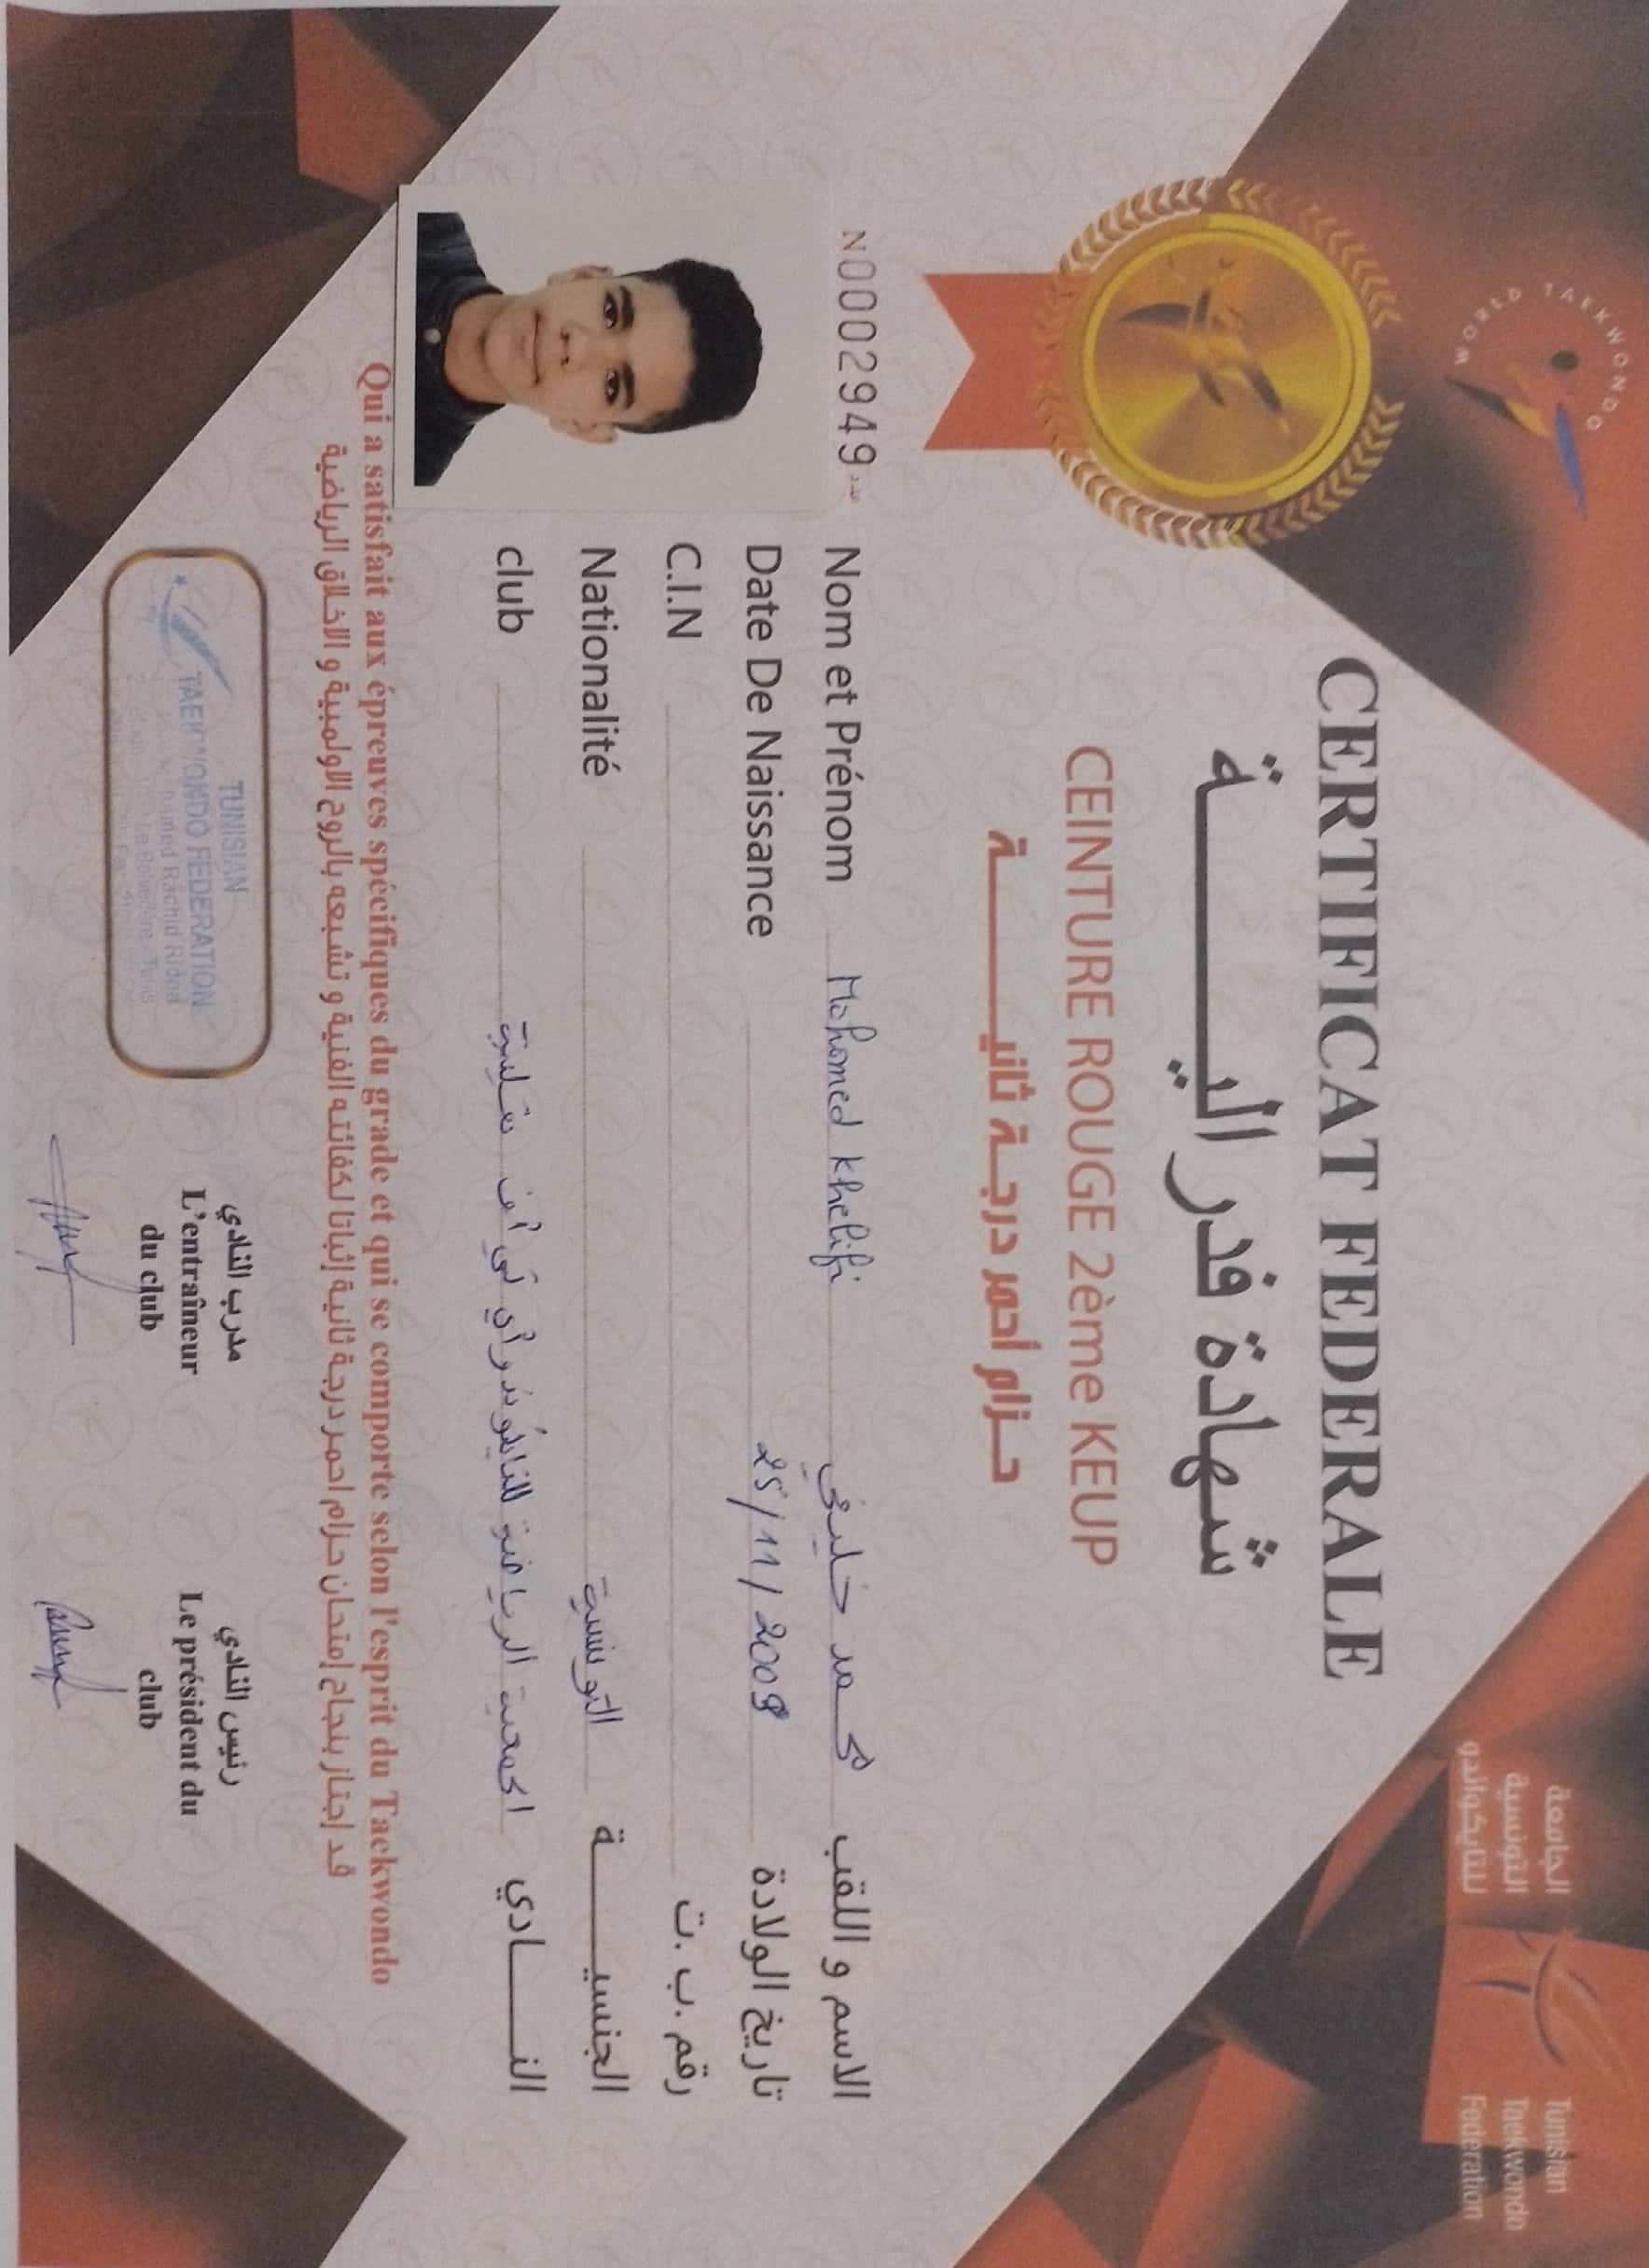 WORLD TAEKWONDO
الجامعة
التونسية
للتايكوندو
Tunisian
Taekwondo
Federation
CERTIFICAT FEDERALE
شهادة فدراليـــــــة
CEINTURE ROUGE 2ème KEUP
حـزام أحمر درجـة ثانيـــــــة
N00002949 عدد
Nom et Prénom Mohamed Khelifi محمد خليفي الاسم و اللقب
Date De Naissance 25/11/2009 تاريخ الولادة
C.I.N رقم .ب .ت
Nationalité التونسية الجنسيـــــــة
club الجمعية الرياضية للتايكوندو أي تي أف النـــــادي
Qui a satisfait aux épreuves spécifiques du grade et qui se comporte selon l'esprit du Taekwondo
قد إجتاز بنجاح إمتحان حزام احمر درجة ثانية إثباتا لكفائته الفنية و تشبعه بالروح الاولمبية و الاخلاق الرياضية
TUNISIAN
TAEKWONDO FEDERATION
Rachid Ridha
Le Belvédère Tunis
مدرب النادي
L'entraîneur
du club
رئيس النادي
Le président du
club